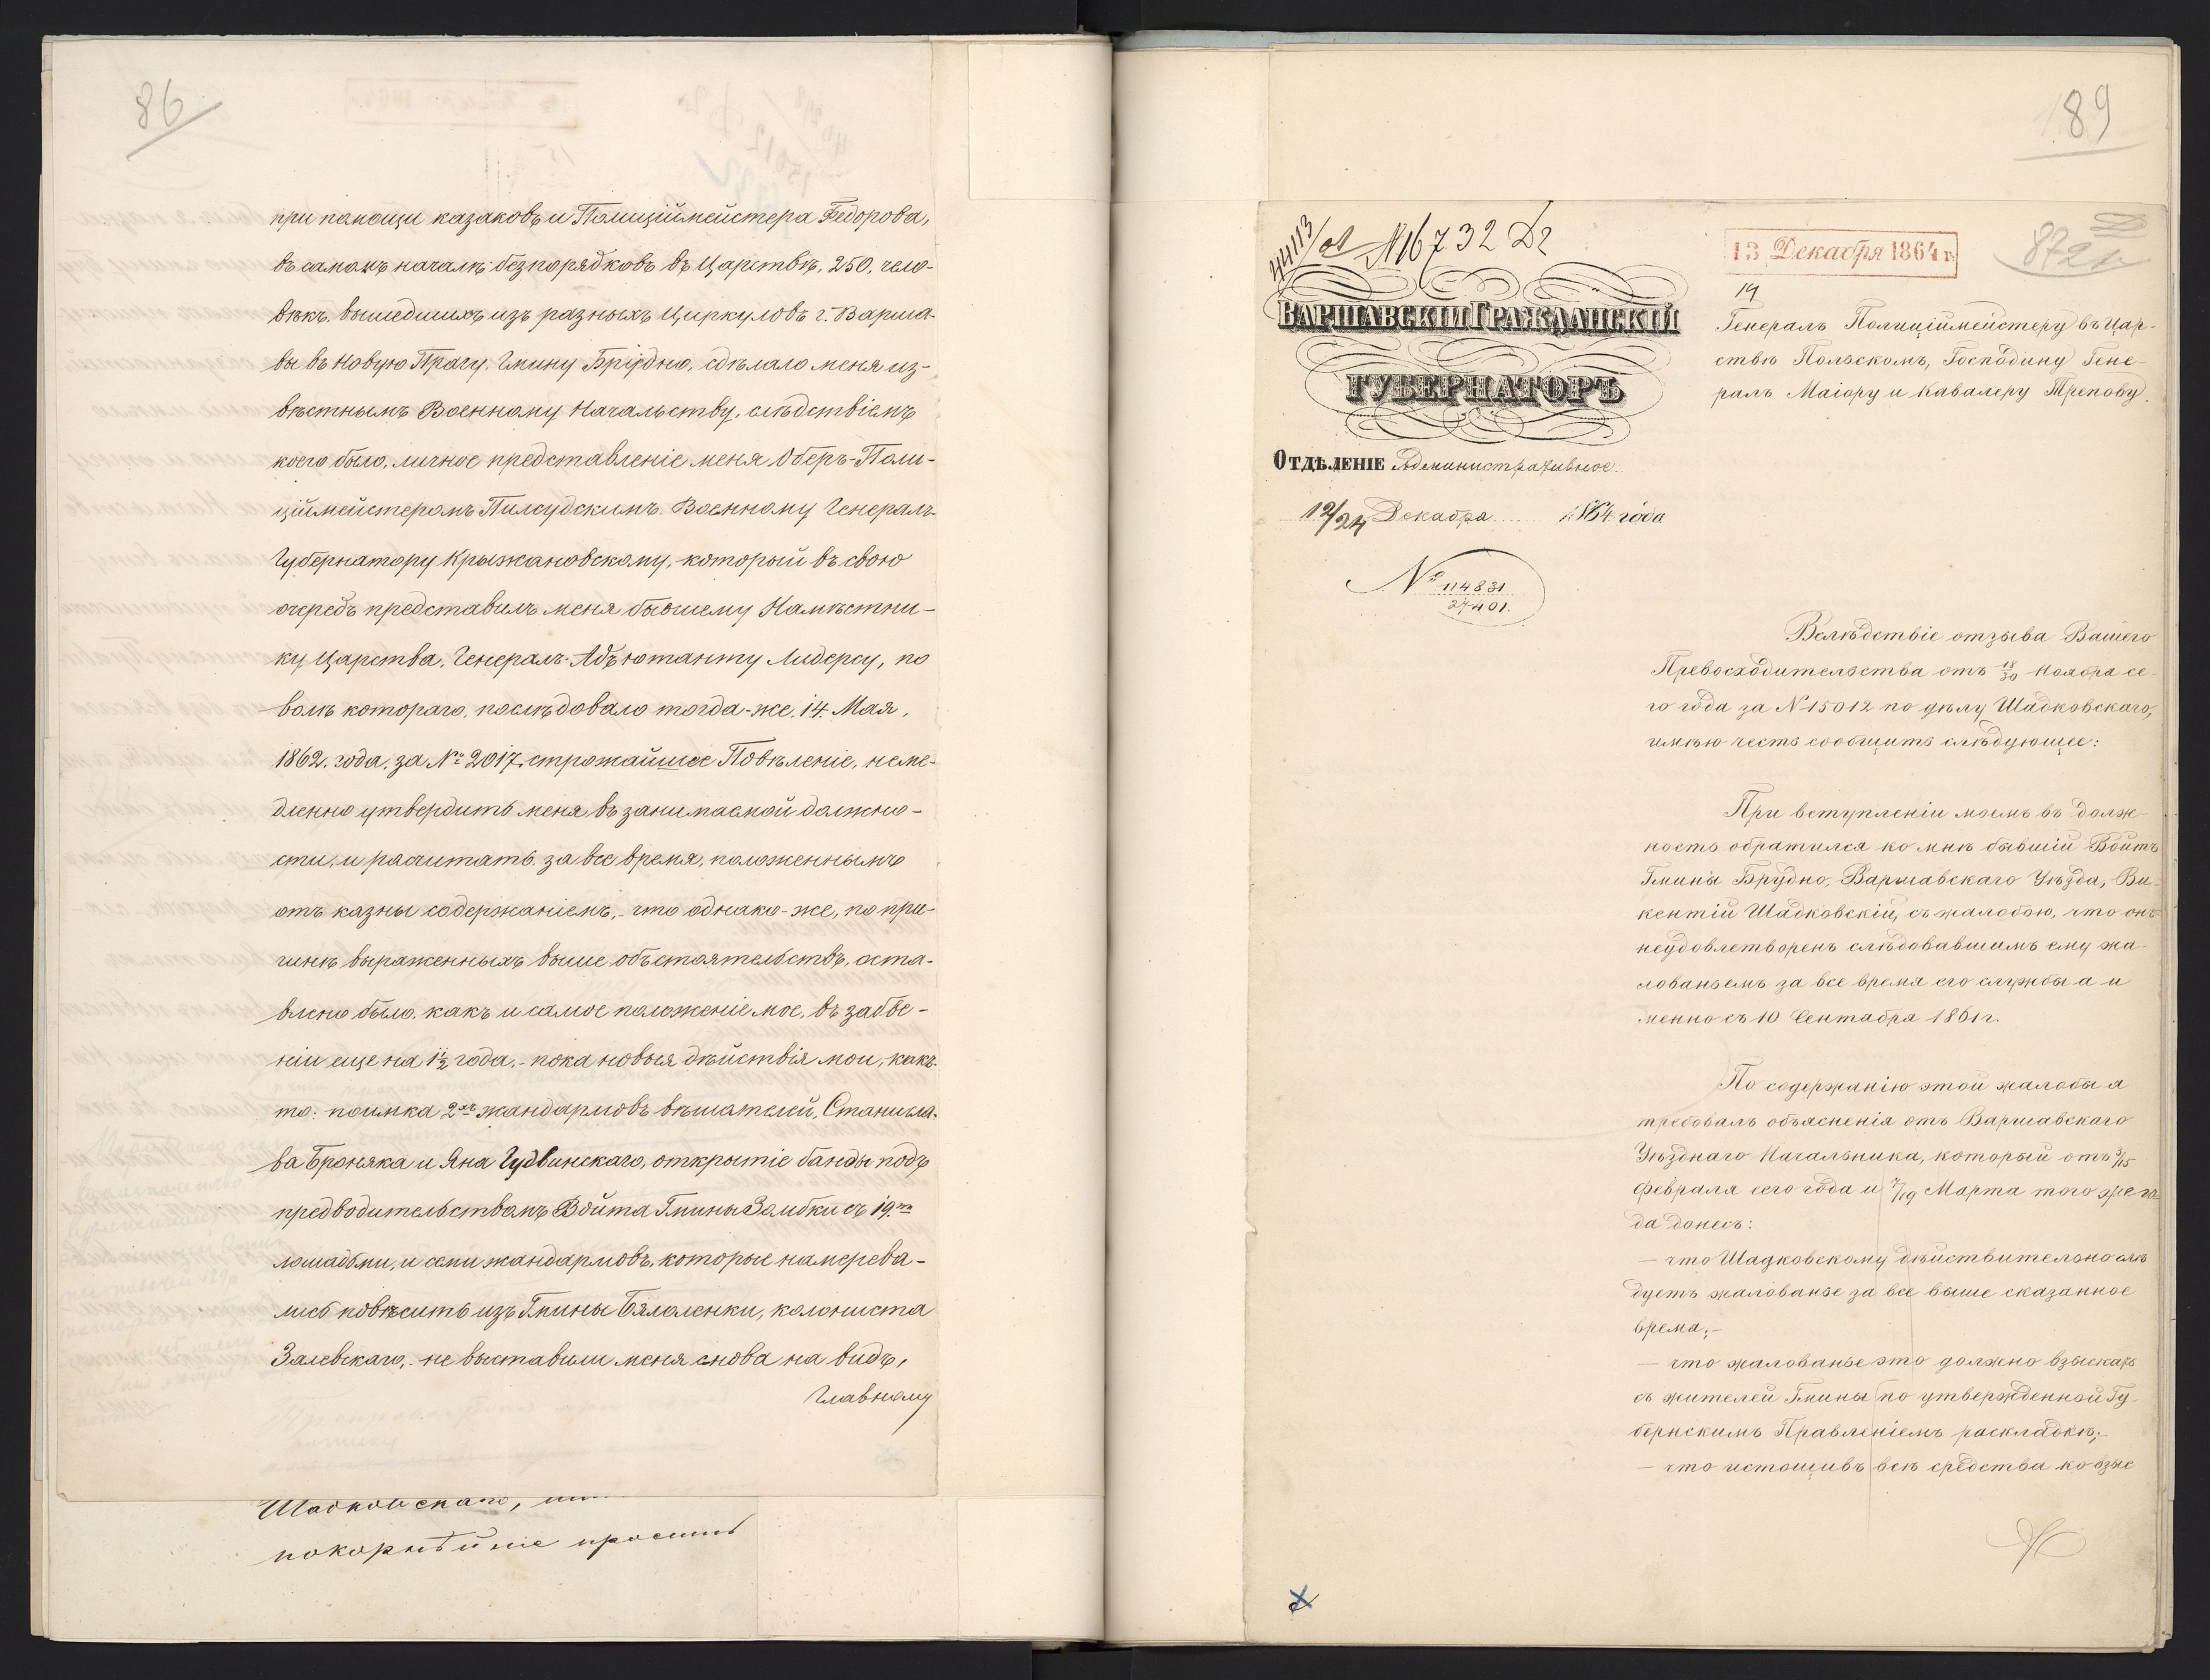 86
при помощи казаковъ и Полиціймейстера Ѳедорова,
въ самомъ началѣ безпорядковъ въ Царствѣ, 250, чело-
вѣкъ. вышедшихъ изъ разныхъ Циркуловъ г. Варша-
вы въ Новую Прагу, Гмину Брудно, сдѣлало меня из-
вѣстнымъ Военному Начальству, слѣдствіемъ
коего было, личное представленіе меня Оберъ-Поли-
ціймейстеромъ Пилсудскимъ. Военному Генералъ-
Губернатору Крыжановскому, который въ свою
очередь представилъ меня бывшему Намѣстни-
ку Царства, Генералъ-Адъютанту Лидерсу, по
волѣ котораго, послѣдовало тогда-же, 14. Мая,
1862. года, за № 2017. строжайшее Повѣленіе, неме-
дленно утвердить меня въ занимаемой должно-
сти, и расчитать за все время, положеннымъ
отъ казны содержаніемъ,- что однако-же, по при-
чинѣ выраженныхъ выше обстоятельствъ, оста-
влено было, какъ и самое положеніе мое, въ забве-
ніи еще на 1½ года,- пока новыя дѣйствія мои, какъ-
то: поимка 2хъ жандармовъ вѣшателей, Станисла-
ва Броняка и Яна Гудвинскаго, открытіе банды подъ
предводительствомъ Войта Гмины Зомбки съ 19.ю
лошадьми, и семи жандармовъ, которые намерева-
лись повѣсить изъ Гмины Бялоленки, колониста
Залевскаго,- не выставили меня снова на видъ,
Главному
Шадковскаго,
покорнѣйше просить
89
44113/01 №16732 Д2
13 Декабря 1864 г.
872
19
ВАРШАВСКІЙ ГРАЖДАНСКІЙ
ГУБЕРНАТОРЪ
ОТДѢЛЕНІЕ Административное.
12/24 Декабря 1864 года
№ 114831
27401.
Генералъ Полиціймейстеру въ Цар-
ствѣ Польскомъ, Господину Гене-
ралъ Маіору и Кавалеру Трепову.
Вслѣдствіе отзыва Вашего
Превосходительства отъ 18/30 Ноября се-
го года за N 15012 по дѣлу Шадковскаго,
имѣю честь сообщить слѣдующее:
При вступленіи моемъ въ долж-
ность обратился ко мнѣ бывшій Войтъ
Гмины Брудно, Варшавскаго Уѣзда, Ви-
кентій Шадковскій, съ жалобою, что онъ
неудовлетворенъ слѣдовавшимъ ему жа-
лованьемъ за все время его службы а и
менно съ 10 Сентября 1861 г.
По содержанію этой жалобы я
требовалъ объясненія отъ Варшавскаго
Уѣзднаго Начальника, который отъ 3/15
Февраля сего года и 7/19 Марта того же го-
да донесъ:
— что Шадковскому дѣйствительно слѣ
дуетъ жалованье за все выше сказанное
время;—
— что жалованье это должно взыскать
съ жителей Гмины по утвержденной Гу-
бернскимъ Правленіемъ раскладкѣ;—
— что истощивъ всѣ средства ко взыс